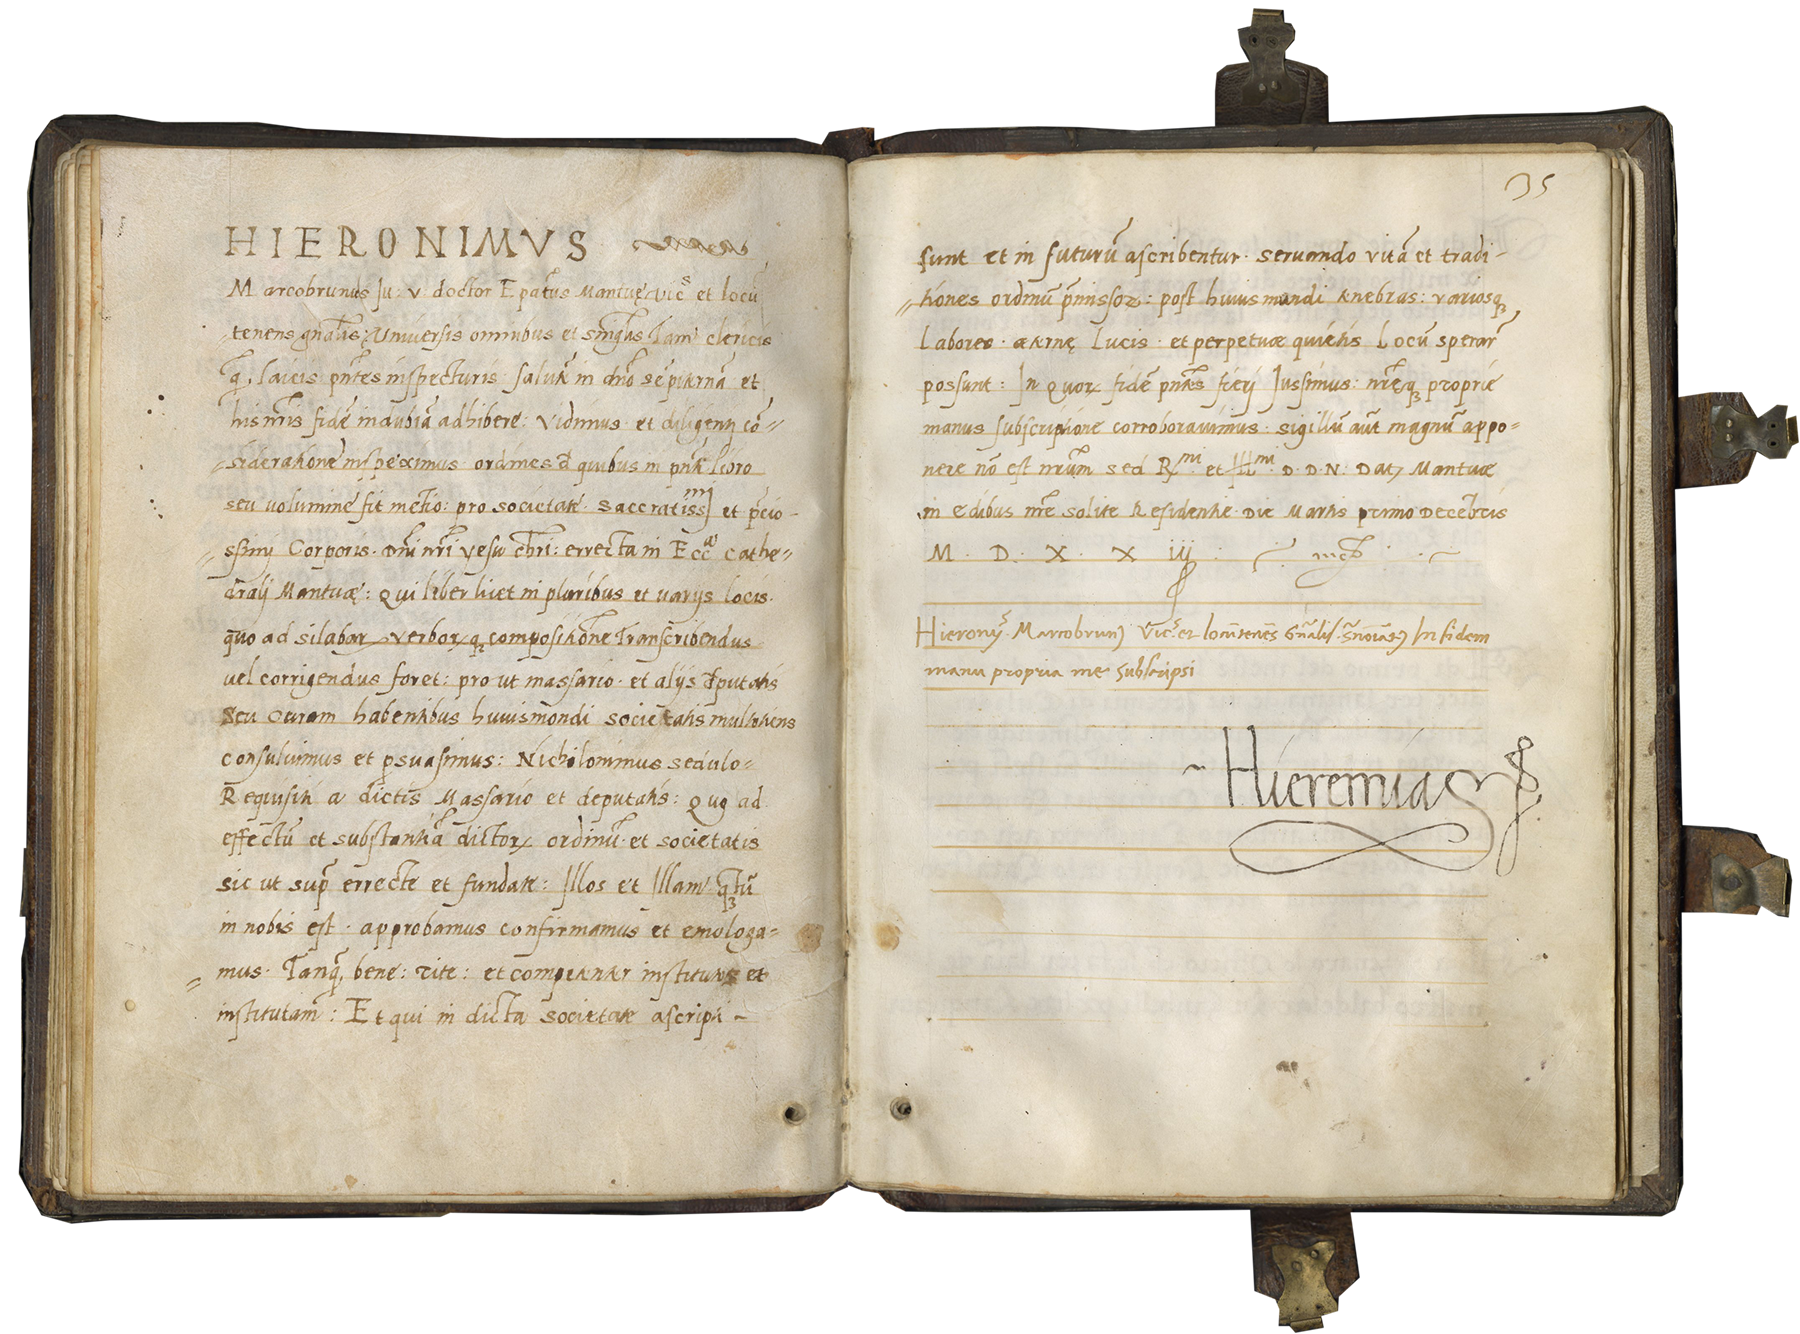 HIERONIMVS
Marcobrunus Ju: v: doctor Epatus Mantuę vics et locū
tenens gnalis: Universis ominibus et singlis Tam clericis
q̄, laicis pntēs inspecturis salutē in dnō sēpiternā et
his nris fidē indubiā adhibere: Vidimus et diligenti cō=
=sideratione inspeximus ordines đ quibus in pntī libro
seu volumine fit metio: pro societate Saccratissmi et pcio-
=ssimi Corporis Dni nri yesu chri: errecta in Eccla cathe=
dralj Mantuę: Qui liber licet in pluribus et varijs locis
quo ad silabarꝝ verborꝝqꝫ compositionē Transcribendus
vel corrigendus foret: pro ut massario et alijs đputatis
Seu curam habentibus huiusmondi societatis multotiens
consuluimus et psuasimus: Nichilominus sedulo=
Requisiti a dictis Massario et deputatis: Quo ad
effectū et substantiā dictorꝝ ordinū et societatis
sic ut supr errecte et fundate: Illos et Illam qꝫtū
in nobis est approbamus confirmamus et emologa=
=mus Tanq̄, bene: rite: et competenter institutos et
institutam: Et qui in dicta societate ascripti -
35
sunt et in futurū ascribentur seruando vitā et tradi-
=tiones ordinū pmissoꝝ: post huius mundi tenebras: variosqꝫ
Labores æternę Lucis et perpetuæ quietis Locū sperar
possunt: In quorꝝ fidē pntēs fierj Jussimus: nrēqꝫ proprie
manus subscriptione corroborauimus sigillū aūt magnū appo=
nere nō est nrūm sed Rmi et Illmi D.D.N. Datꝫ Mantuæ
in ędibus nrē solite Residentie Die Martis primo Decēbris
M. D. X. X iij
Hierony. Marcobrunꝯ Vics et locūtenēs Gnalis In fidem
manu propria me subscripsi
Hieremias